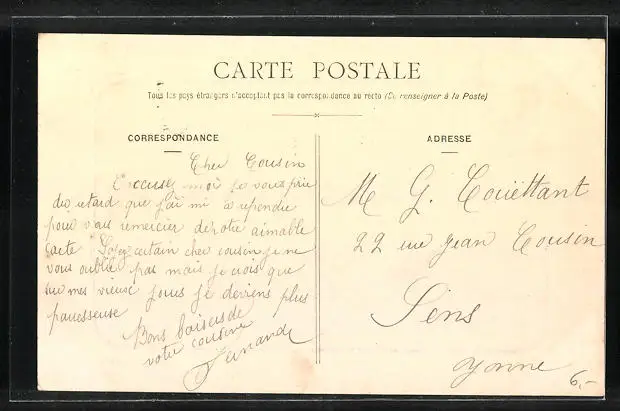 CARTE POSTALE
Tous les pays étrangers n'acceptent pas la correspondance au recto (Se renseigner à la Poste)
CORRESPONDANCE
Cher Cousin
Excuse moi je vous prie
du retard que j'ai mi a rependre
pour vous remercier de votre aimable
carte Soyez certain cher cousin je ne
vous oublie pas mais je crois que
sur mes vieux jours je deviens plus
paresseuse
Bons baisers de
votre cousine
Fernande
ADRESSE
M G. Couëttant
22 rue jean Cousin
Sens
yonne
6,-